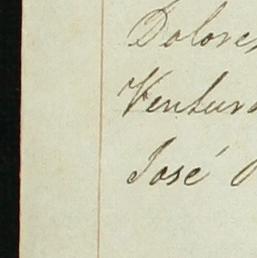 Dolores
Ventura
José